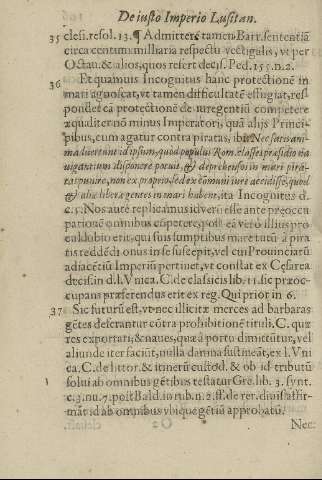 De iusto Imperio Lusitan.
35 clesi. resol. 13. ¶ Admittere tamen Barr. sententiã
circa centum milliaria respectu vectigulis, vt per
Octau. & alios, quos refert decis. Ped. 155. n. 2.
36 Et quamuis Incognitus hanc protectionẽ in
mari agnoscat, vt tamen difficultatẽ effugiat, res-
pondet eã protectionẽ de iure gentiũ competere
æqualiter nõ minus Imperatori, quã alijs Princi-
pibus, cum agatur contra piratas, ibi: Nec satis ani-
maduerunt id ipsum, quod populus Rom. classes præsidio na
uigantium disponere potuit, & deprehensos in mari pirà-
tas punire, non ex proprio, sed ex cõmuni iure accidisse, quod
& aliæ liberæ gentes in mari habent, ita Incognitus d.
c. 5. Nos autẽ replicamus id verũ esse ante præoccu
pationẽ omnibus cõpetere, post eã verò illius pro
eul dobio erit, qui suis sumptibus mare tutũ à pira
tis reddẽdi onus in se suscepit, vel cui Prouinciarũ
adiacẽtiũ Imperiũ pertinet, vt constat ex Cęsarea
decis. in d. l. Vnica, C. de classicis lib. 11. sic præoc-
cupans præferendus erit ex reg. Qui prior in 6.
37 Sic futurũ est, vt nec illicitæ merces ad barbaras
gẽtes deferantur cõtra prohibitionẽ tituli, C. quæ
res exportari, & naues, quæ à portu dimittũtur, vel
aliunde iter faciũt, nulla damna sustineãt, ex l. Vni
ca, C. de littor. & itinerũ custod. & ob id tributũ
solui ab omnibus gẽtibus testatur Gre. lib. 3. synt.
c. 3. nu. 7. post Bald. in rub. n. 2. ff. de rer. diuis. affir-
mãt id ab omnibus vbique gẽtiũ approbatũ.
O2 Nec